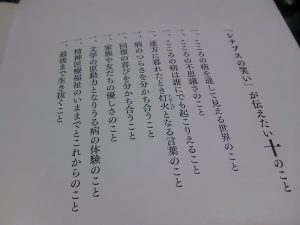 「シナプスの笑い」が伝えたい十のこと
一、こころの病を通して見える世界のこと
一、こころの不思議さのこと
一、こころの病は誰にでも起こりえること
一、途方に暮れたとき灯火となる言葉のこと
一、病のつらさを分かち合うこと
一、回復の喜びを分かち合うこと
一、家族や友だちの優しさのこと
一、文学の原動力となりうる病の体験のこと
一、精神医療福祉のいままでとこれからのこと
一、最後まで生き抜くこと